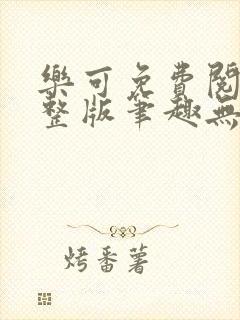 樂可免費閱
整版筆趣無
烤番薯